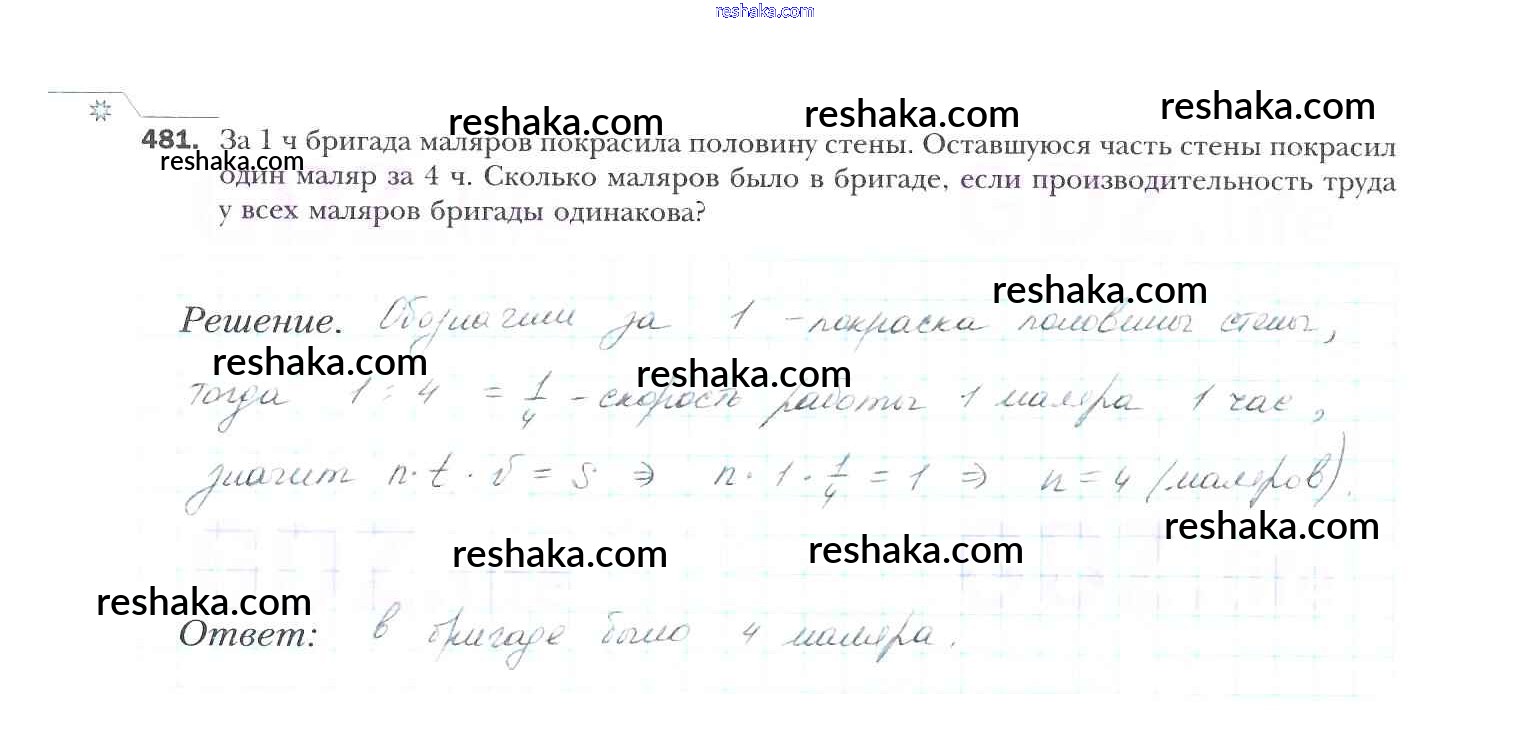 reshaka.com
reshaka.com reshaka.com reshaka.com
481. За 1 ч бригада маляров покрасила половину стены. Оставшуюся часть стены покрасил
reshaka.com
один маляр за 4 ч. Сколько маляров было в бригаде, если производительность труда
у всех маляров бригады одинакова?
reshaka.com
Решение. Обозначим за 1 - покраска половины стены,
reshaka.com reshaka.com
тогда 1 : 4 = 1/4 - скорость работы 1 маляра 1 час,
значит n · t · v = S ⇒ n · 1 · 1/4 = 1 ⇒ n = 4 (маляров).
reshaka.com reshaka.com reshaka.com
reshaka.com
Ответ: в бригаде было 4 маляра.